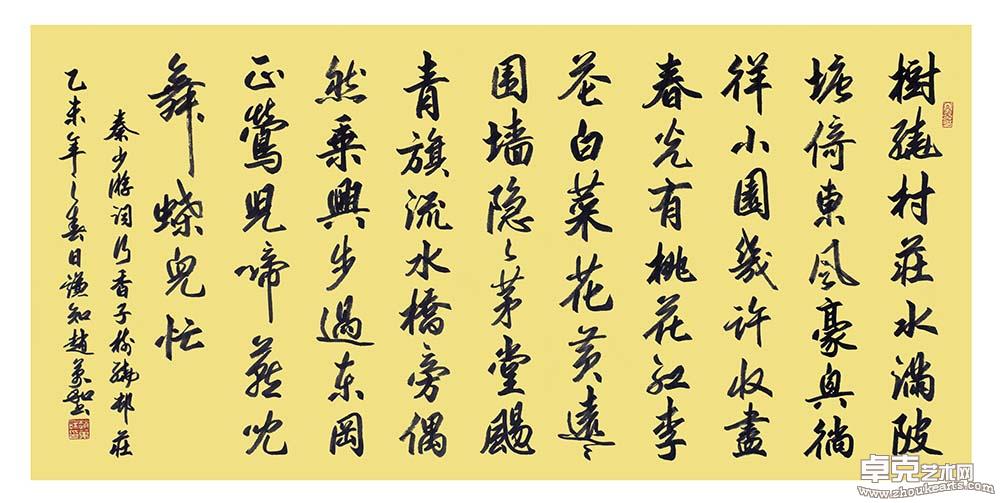 樹繞村莊水滿陂
塘倚東風豪興徜
徉小園幾許收盡
春光有桃花紅李
花白菜花黃遠〻
围墙隐〻茅堂颺
青旗流水橋旁偶
然乘興步過东岡
正鶯兒啼燕兒
舞蝶兒忙
秦少游詞行香子樹繞邨莊
乙未年之春日謙知趙
卓克艺术网
www.zhoukearts.com